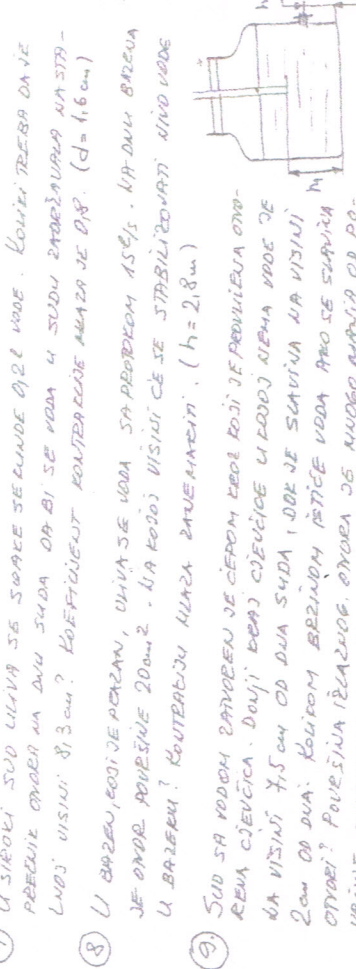 7 U ŠIROKI SUD ULIVA SE SVAKE SEKUNDE 0,2 l VODE. KOLIKI TREBA DA JE
PREČNIK OTVORA NA DNU SUDA DA BI SE VODA U SUDU ZADRŽAVALA NA STA-
LNOJ VISINI 8,3 cm? KOEFICIJENT KONTRAKCIJE MLAZA JE 0,8. (d = 1,6 cm)
8 U BAZEN, KOJI JE PRAZAN, ULIVA SE VODA SA PROTOKOM 15 l/s. NA DNU BAZENA
JE OTVOR POVRŠINE 20 cm². NA KOJOJ VISINI ĆE SE STABILIZOVATI NIVO VODE
U BAZENU? KONTRAKCIJU MLAZA ZANEMARITI. (h = 2,8 m)
9. SUD SA VODOM ZATVOREN JE ČEPOM KROZ KOJI JE PROVUČENA OTVO-
RENA CJEVČICA. DONJI KRAJ CJEVČICE U KOJOJ NEMA VODE JE
NA VISINI 7,5 cm OD DNA SUDA, DOK JE SLAVINA NA VISINI
2 cm OD DNA. KOLIKOM BRZINOM ISTIČE VODA AKO SE SLAVINA
OTVORI? POVRŠINA IZLAZNOG OTVORA JE MNOGO MANJA OD PO-
h